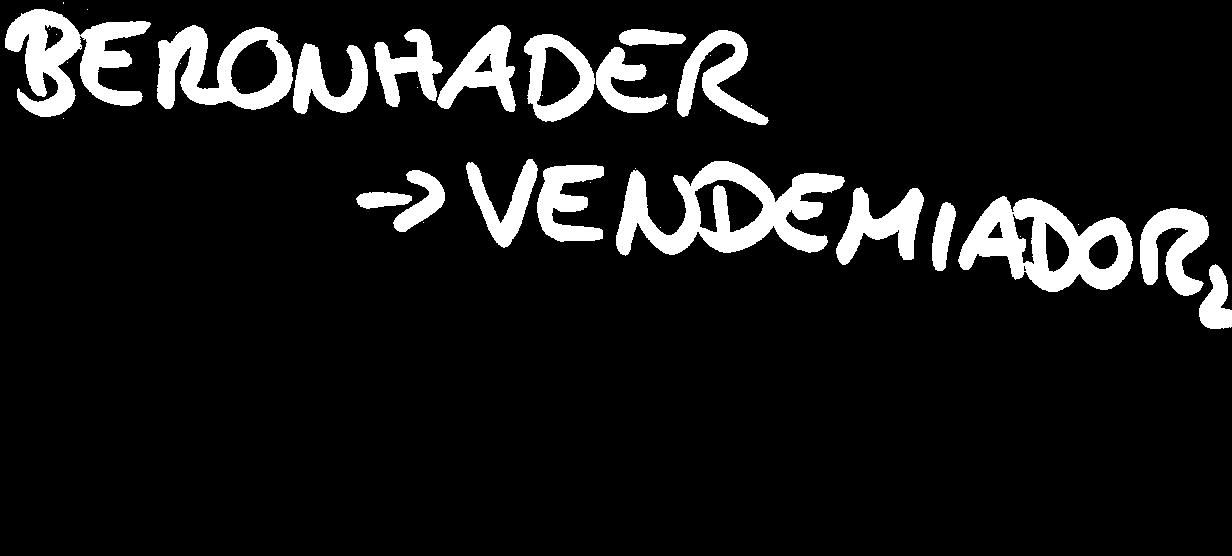 BERONHADER
→ VENDEMIADOR,